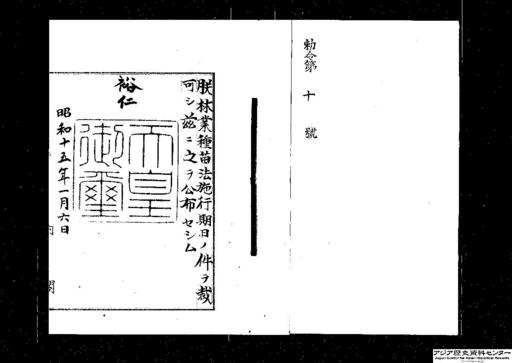 勅令第十號
朕林業種苗法施行期日ノ件ヲ裁
可シ茲ニ之ヲ公布セシム
裕仁
天皇
御璽
昭和十五年一月六日
アジア歴史資料センター
Japan Center for Asian Historical Records